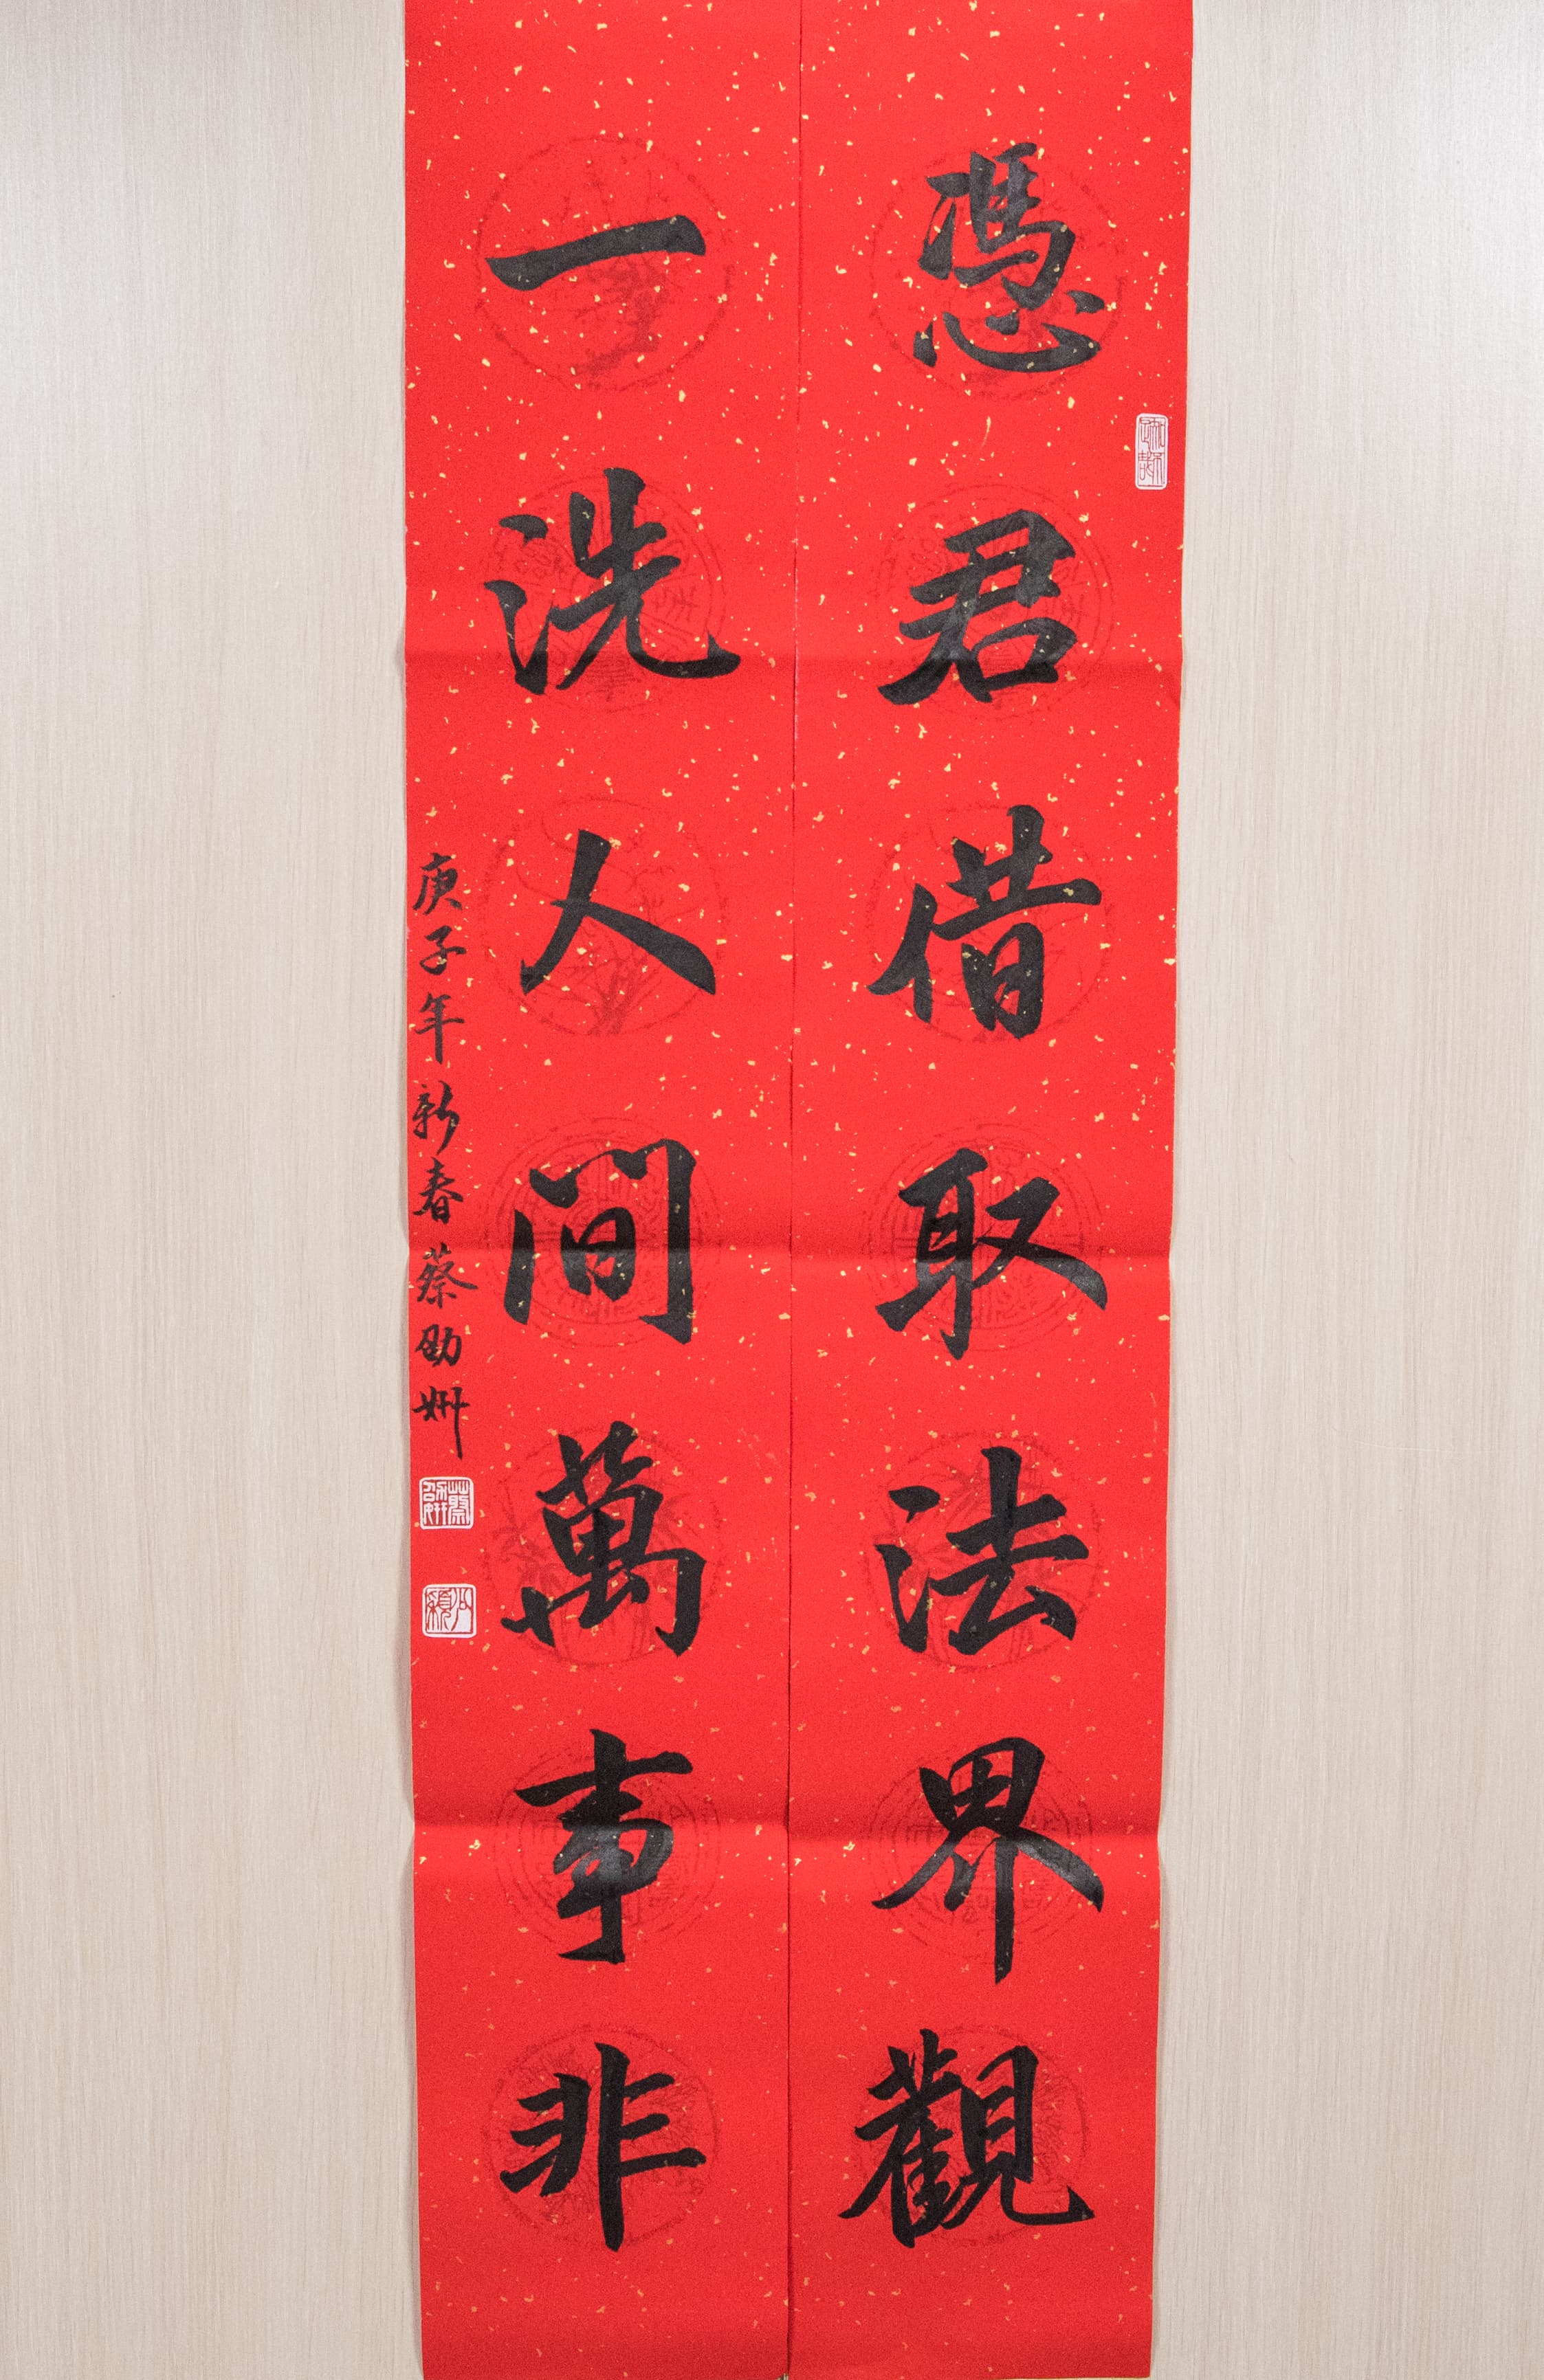 憑君借取法界觀
一洗人間萬事非
庚子年新春蔡劭姍